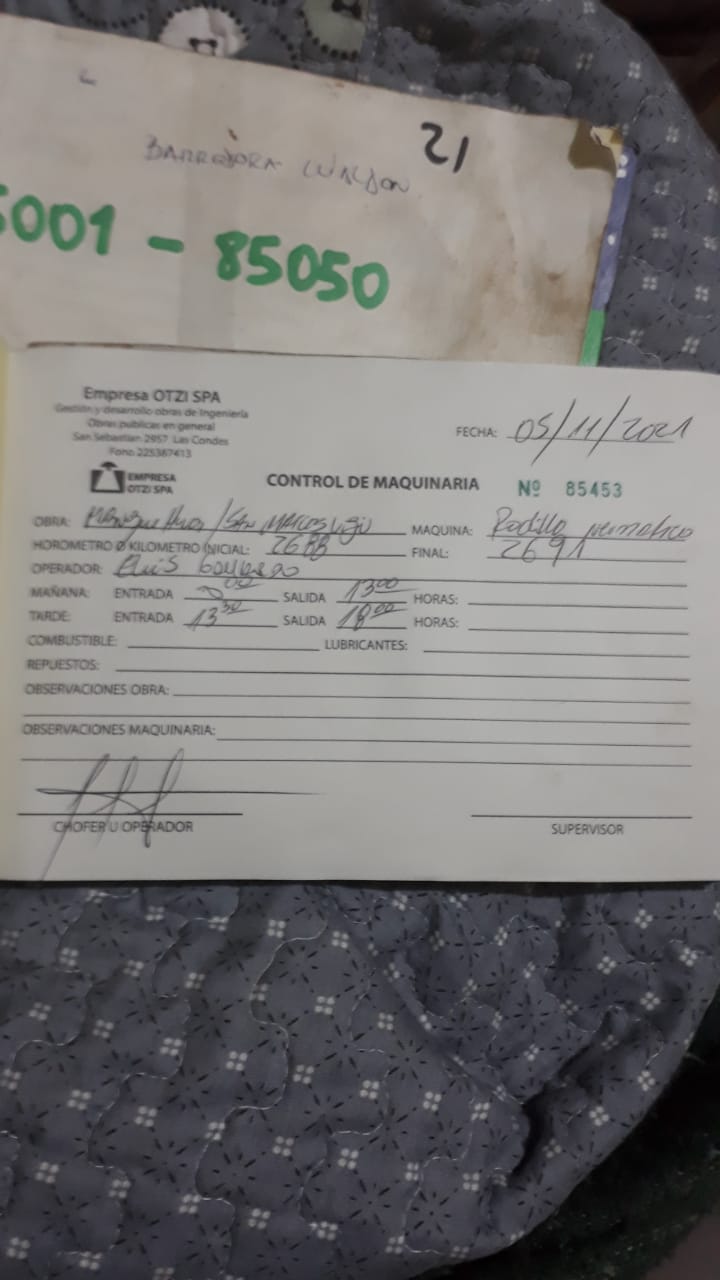 21
BARREDORA WALDON
5001 - 85050
Empresa OTZI SPA
Gestión y desarrollo obras de Ingeniería
Obras publicas en general
San Sebastian 2957 Las Condes
Fono 225367413
EMPRESA
OTZI SPA
FECHA: 05/11/2021
CONTROL DE MAQUINARIA Nº 85453
OBRA: / SAN MARCOS MAQUINA: Rodillo neumatico
HOROMETRO O KILOMETRO INICIAL: 2688 FINAL: 2691
OPERADOR: Luis
MAÑANA: ENTRADA 8:00 SALIDA 13:00 HORAS:
TARDE: ENTRADA 13:30 SALIDA 18:00 HORAS:
COMBUSTIBLE: LUBRICANTES:
REPUESTOS:
OBSERVACIONES OBRA:
OBSERVACIONES MAQUINARIA:
CHOFER U OPERADOR SUPERVISOR